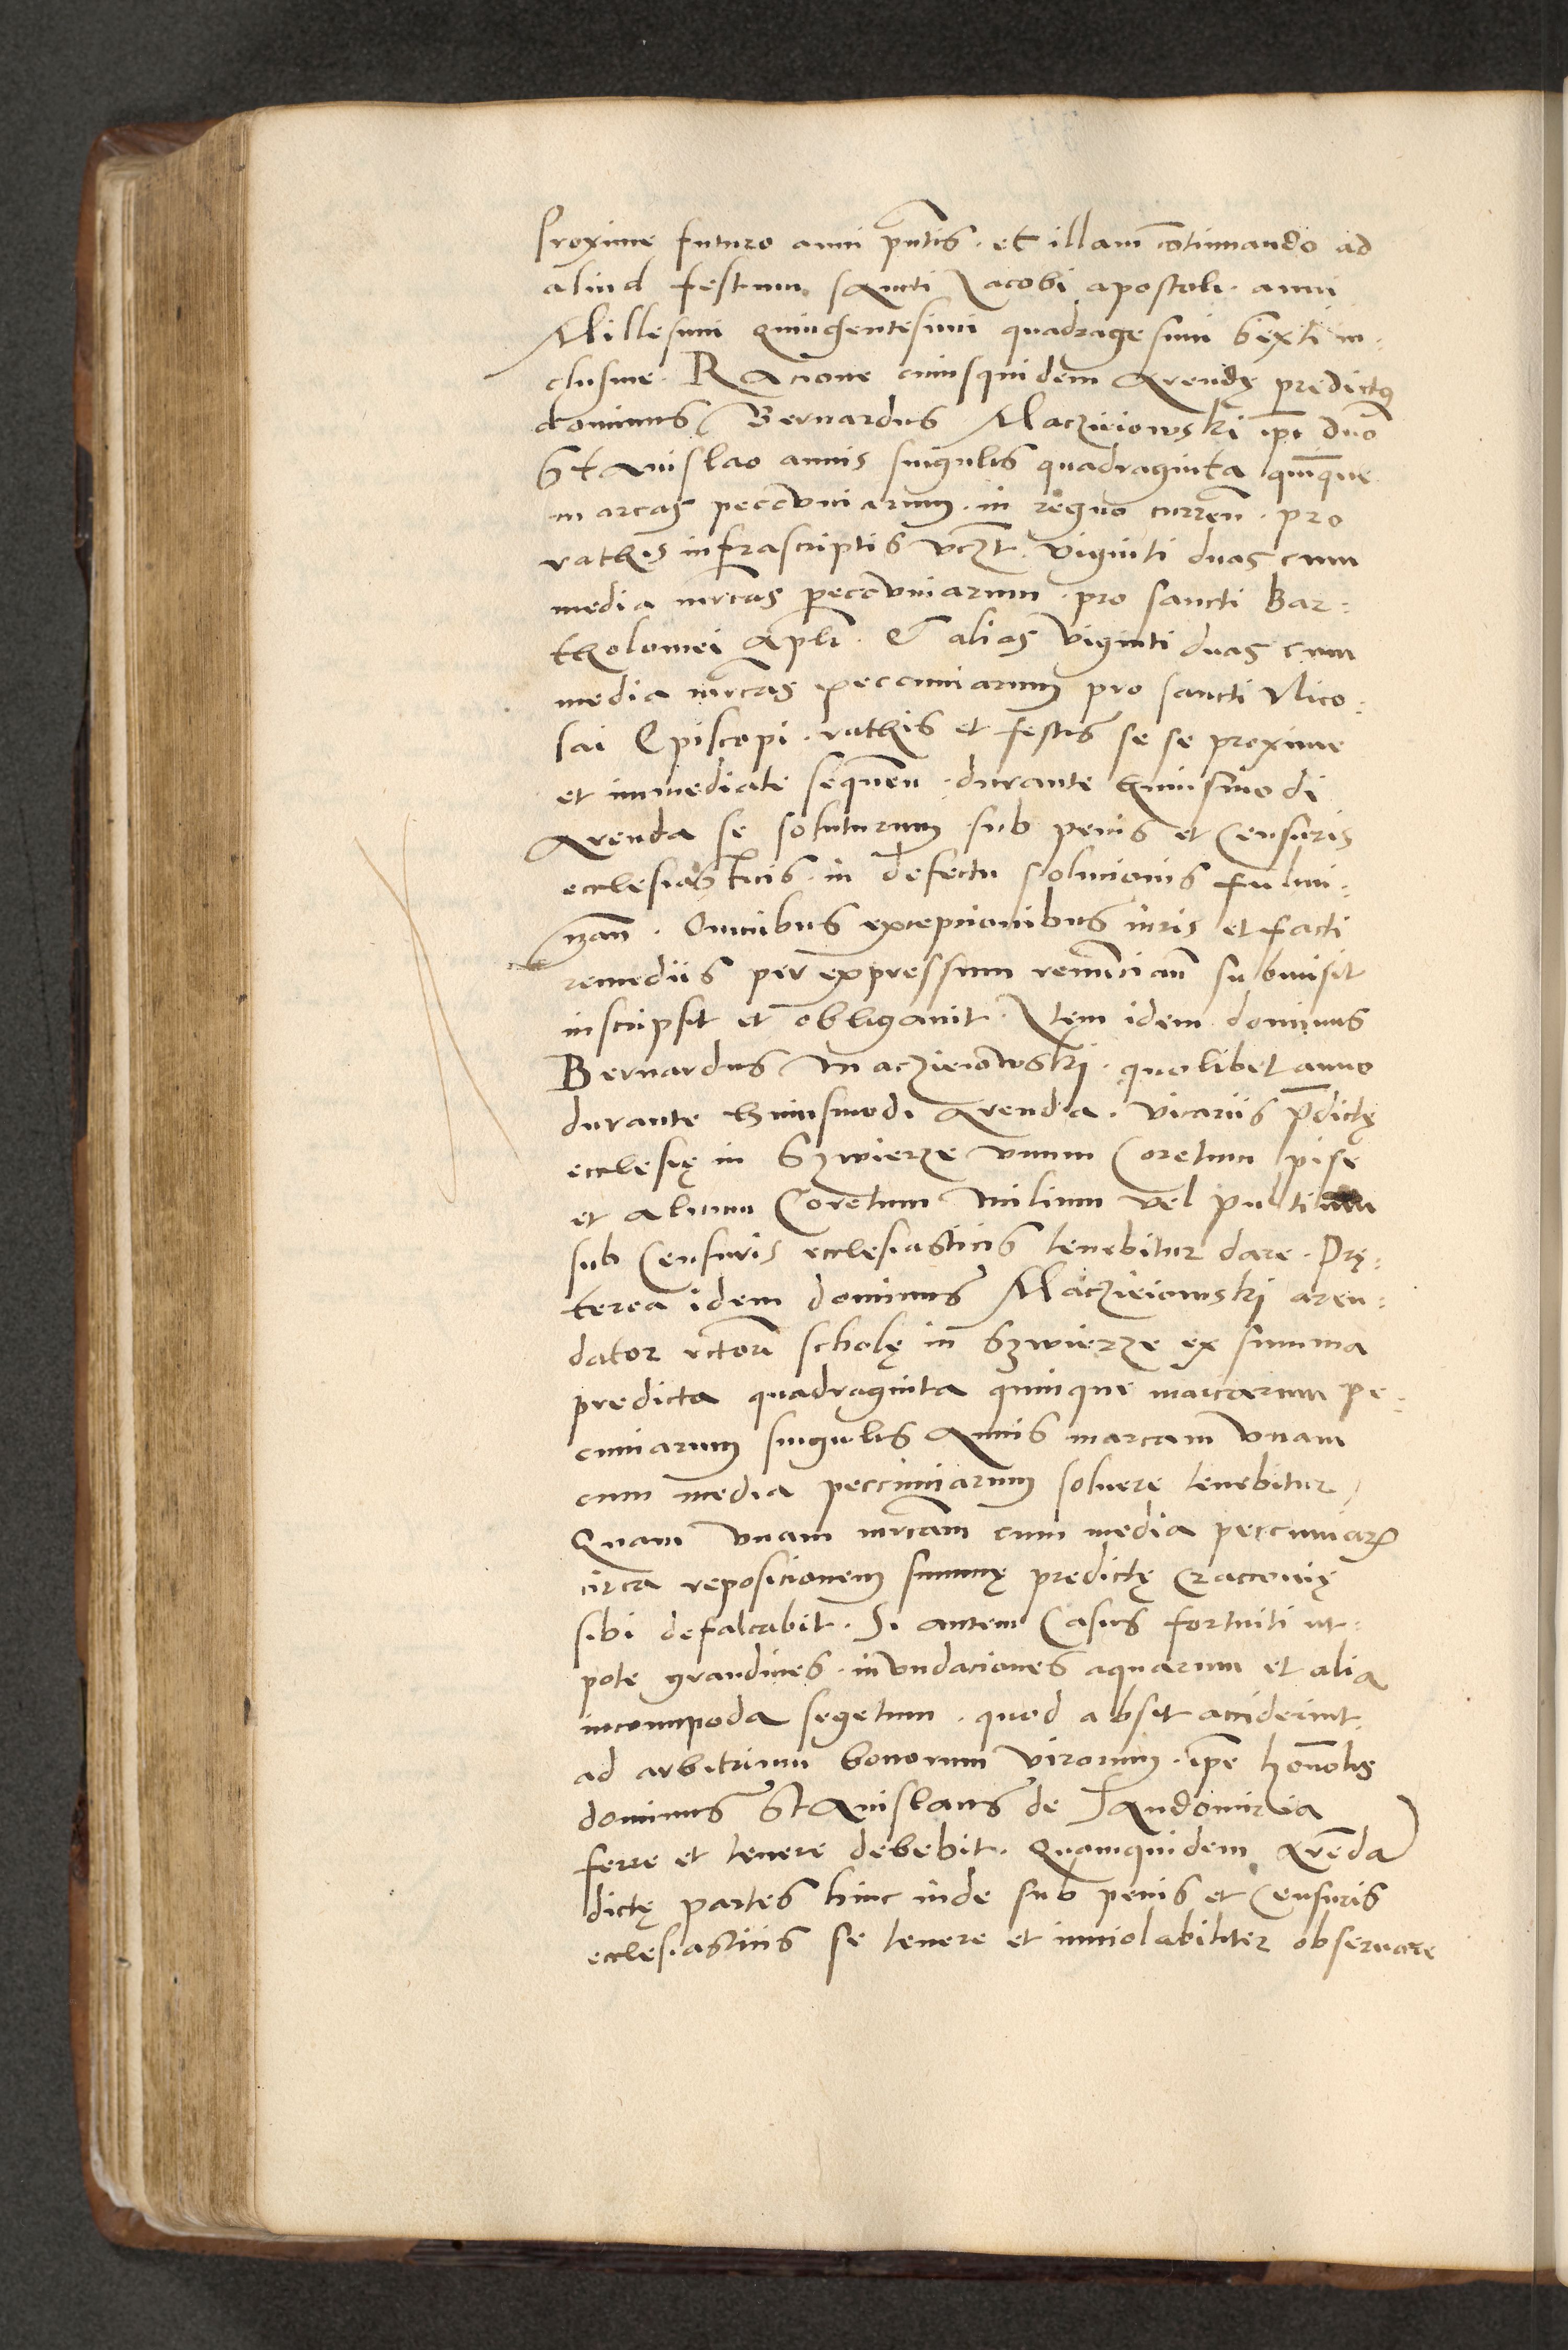 proxime futuro anni pntis. et illam cotinuando ad
aliud festum Sancti Jacobi apostoli. anni
Millesimi quingentesimi quadragesimi Sexti in=
clusiue. Racione cuiusquidem Arendę predictus
dominus Bernardus Maczieiowski ipi dno
Stanislao annis singulis quadraginta quinque
marcas peccuniarum. in regno curren. pro
rathis infrascriptis vczt. viginti duas cum
media mrcas peccuniarum. pro sancti Bar=
tholomei Apli. Et alias viginti duas cum
media mrcas peccuniarum pro sancti Nico=
lai Episcopi. rathis et festis se se proxime
et immediate sequen. durante huiusmodi
Arenda se soluturum sub penis et Censuris
ecclesiasticis. in defectu solucionis fulmi=
nan. Omnibus excepcionibus iuris et facti
remediis per expressum renuncian submisit
inscripsit et obligauit. Item idem dominus
Bernardus Maczieiowski. quolibet anno
durante huiusmodi Arenda. vicariis pdictę
ecclesię in Szwierze vnum Coretum pisę
et alium Coretum milium vel pulti
sub Censuris ecclesiasticis tenebitur dare. Prę=
terea idem dominus Maczieiowski aren=
dator rctori scholę in Szwierze ex summa
predicta quadraginta quinque marcarum pe=
cuniarum singulis Annis marcam vnam
cum media peccuniarum soluere tenebitur,
Quam vnam mrcam cum media peccuniar
circa reposicionem summę predictę Craccouię
sibi defalcabit. Si autem Casus fortuiti ut=
pote grandines. invndaciones aquarum et alia
incommoda segetum. quod absit acciderint.
ad arbitrium bonorum virorum. ipe honolis
dominus Stanislaus de Sandomiria
ferre et tenere debebit. Quamquidem Arenda
dictę partes hinc inde sub penis et Censuris
ecclesiasticis se tenere et inuiolabiliter obseruare